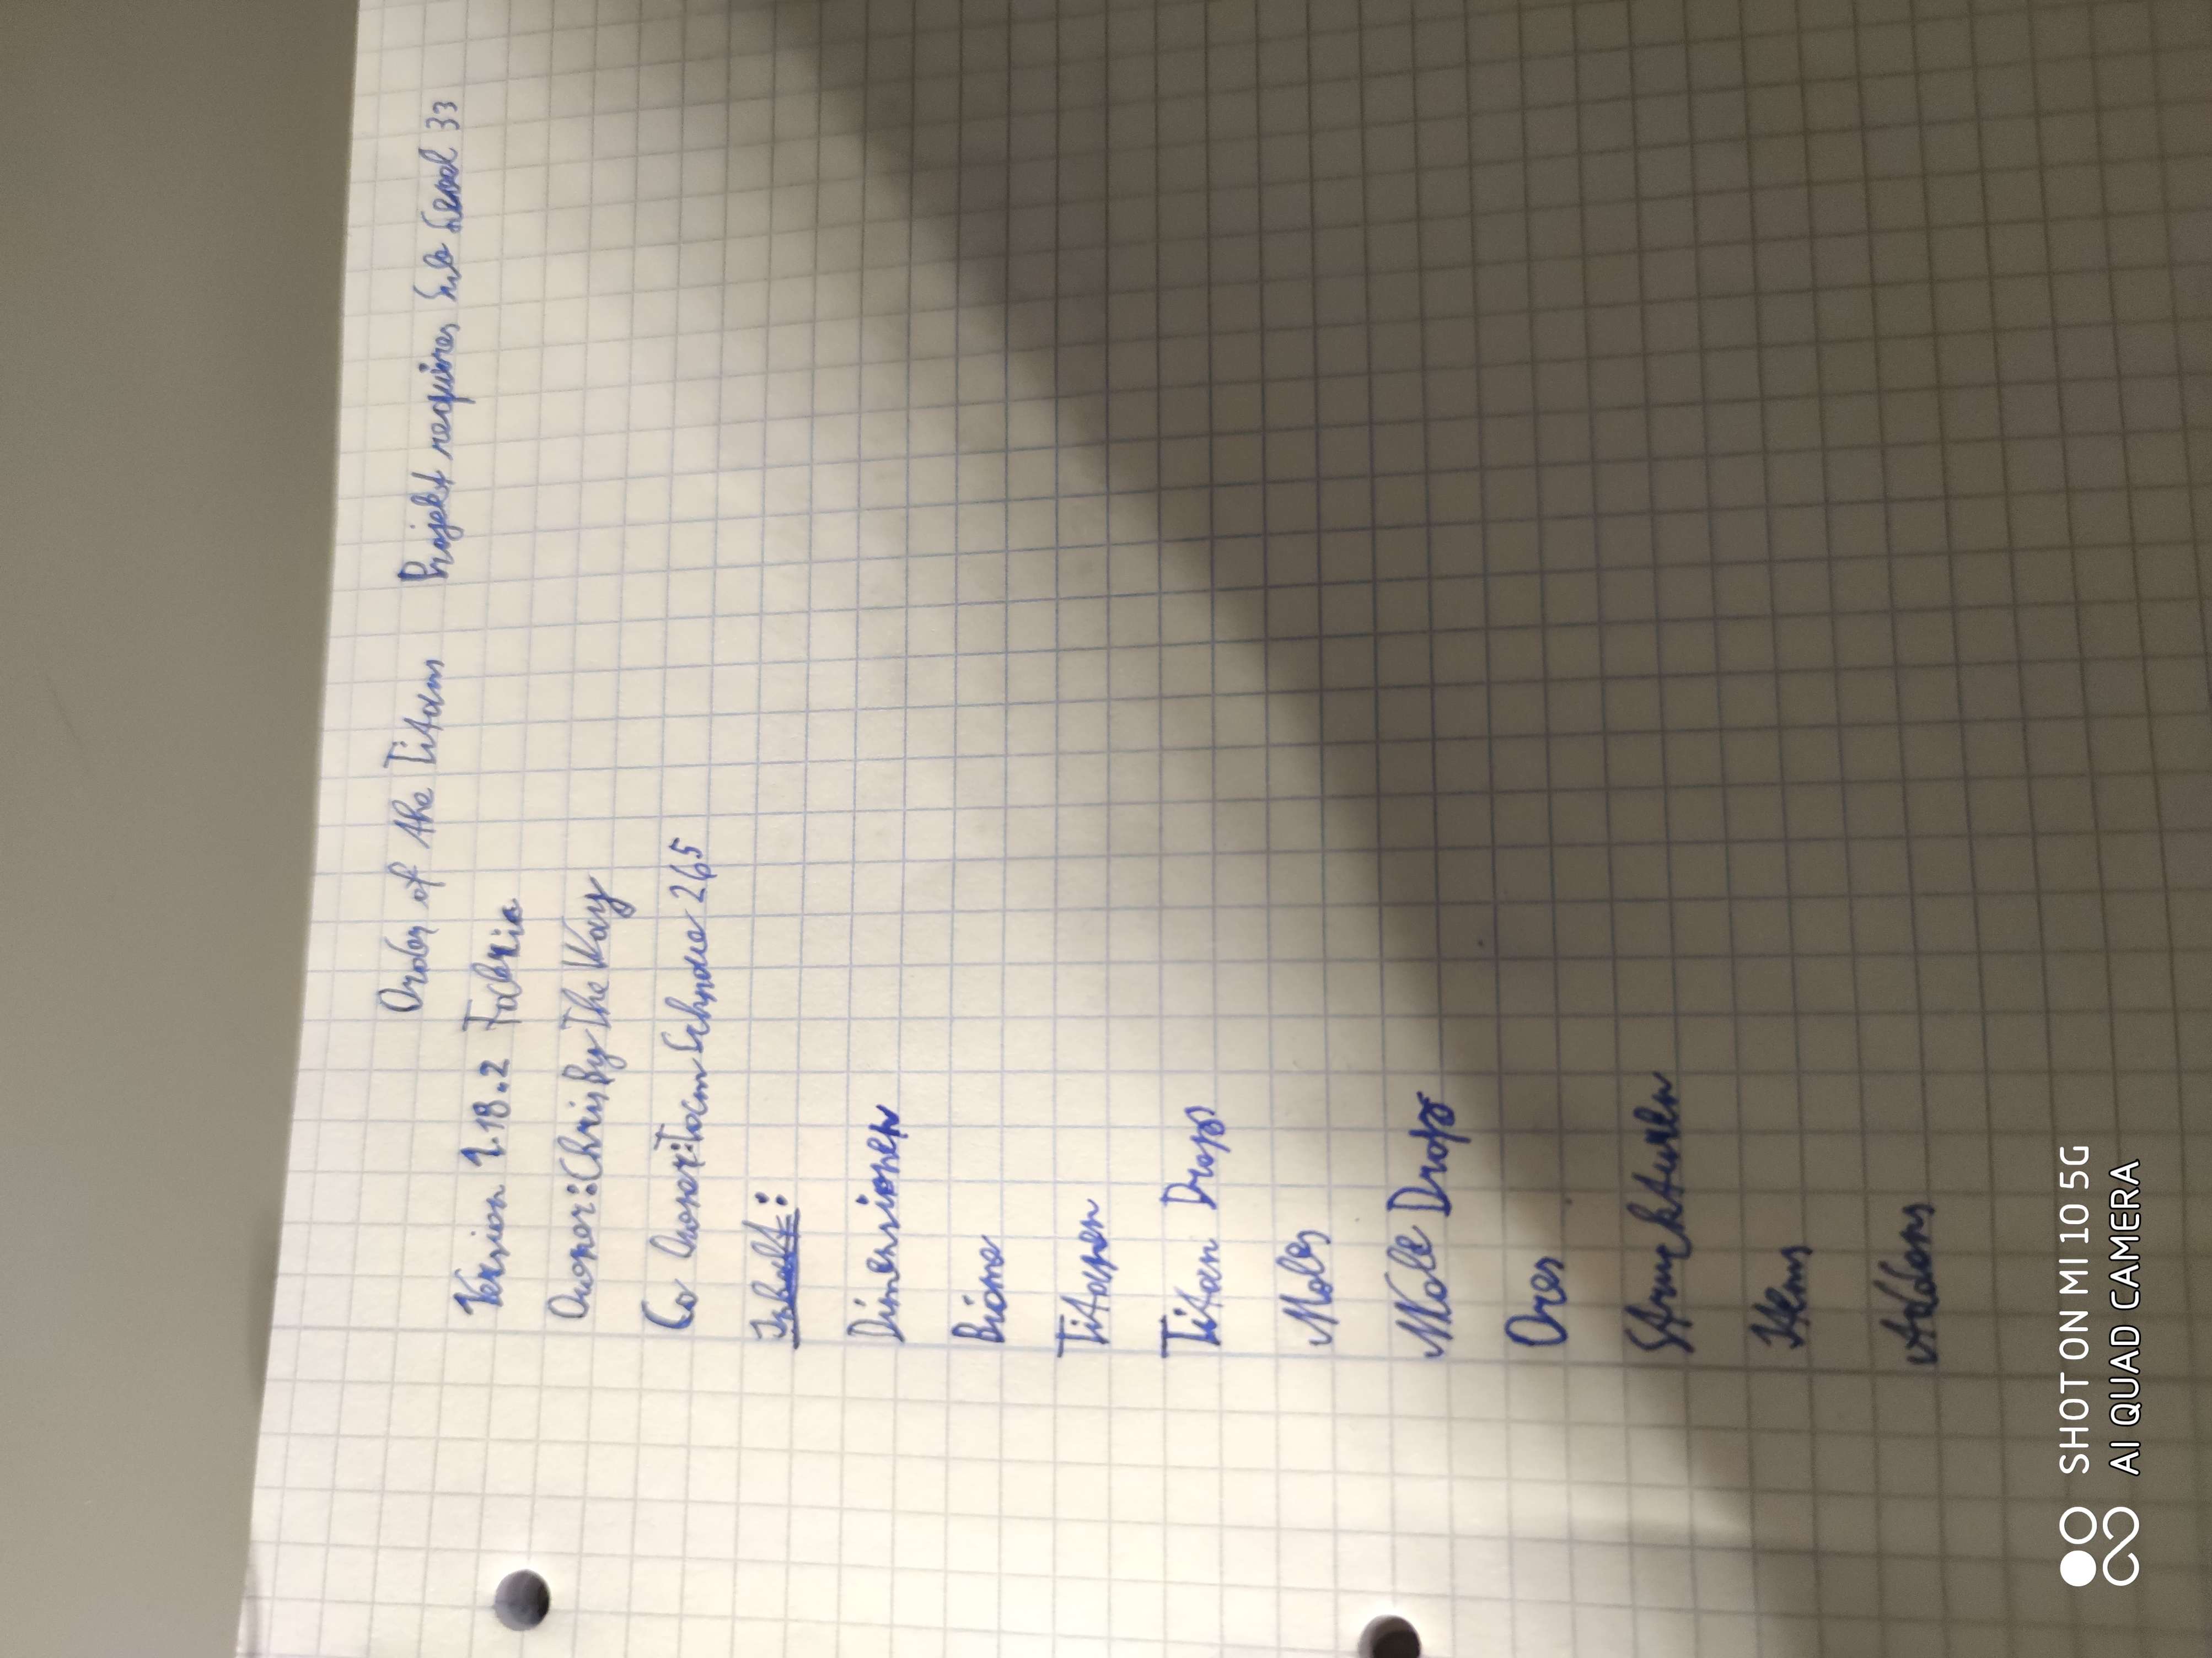 Order of the Titans Projekt requires Sub Level 33
Version 1.18.2 Fabric
Owner: ChrisByTheWay
Co Owner: 265
Inhalt:
Dimensionen
Biome
Titanen
Titan Drops
Mobs
Mob Drops
Ores
Struckturen
Items
Addons
SHOT ON MI 10 5G
AI QUAD CAMERA